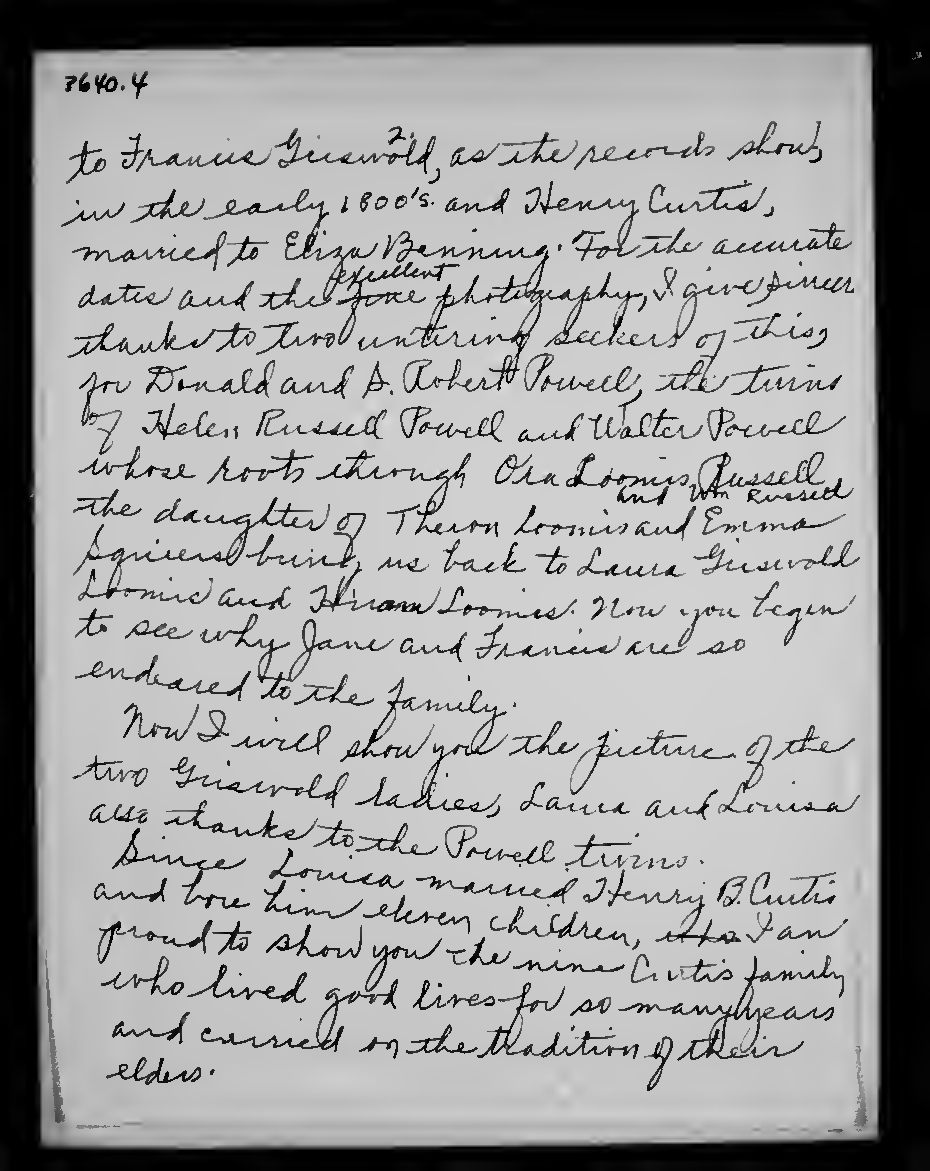 3640.4
2.
to Francis Griswold, as the records show,
in the early 1800's. and Henry Curtis,
married to Eliza Benning. For the accurate
excellent
dates and the fine photography, I give sincer
thanks to two untiring seekers of this,
for Donald and D. Robert Powell, the twins
of Helen Russell Powell and Walter Powell
whose roots through Ora Loomis Russell
and Wm Russell
the daughter of Theron Loomis and Emma
Squiers bring us back to Laura Griswold
Loomis and Hiram Loomis. Now you begin
to see why Jane and Francis are so
endeared to the family.
Now I will show you the picture of the
two Griswold ladies, Laura and Louisa
also thanks to the Powell twins.
Since Louisa married Henry B. Curtis
and bore him eleven children, who I am
proud to show you the nine Curtis family
who lived good lives for so many years
and carried on the tradition of their
elders.